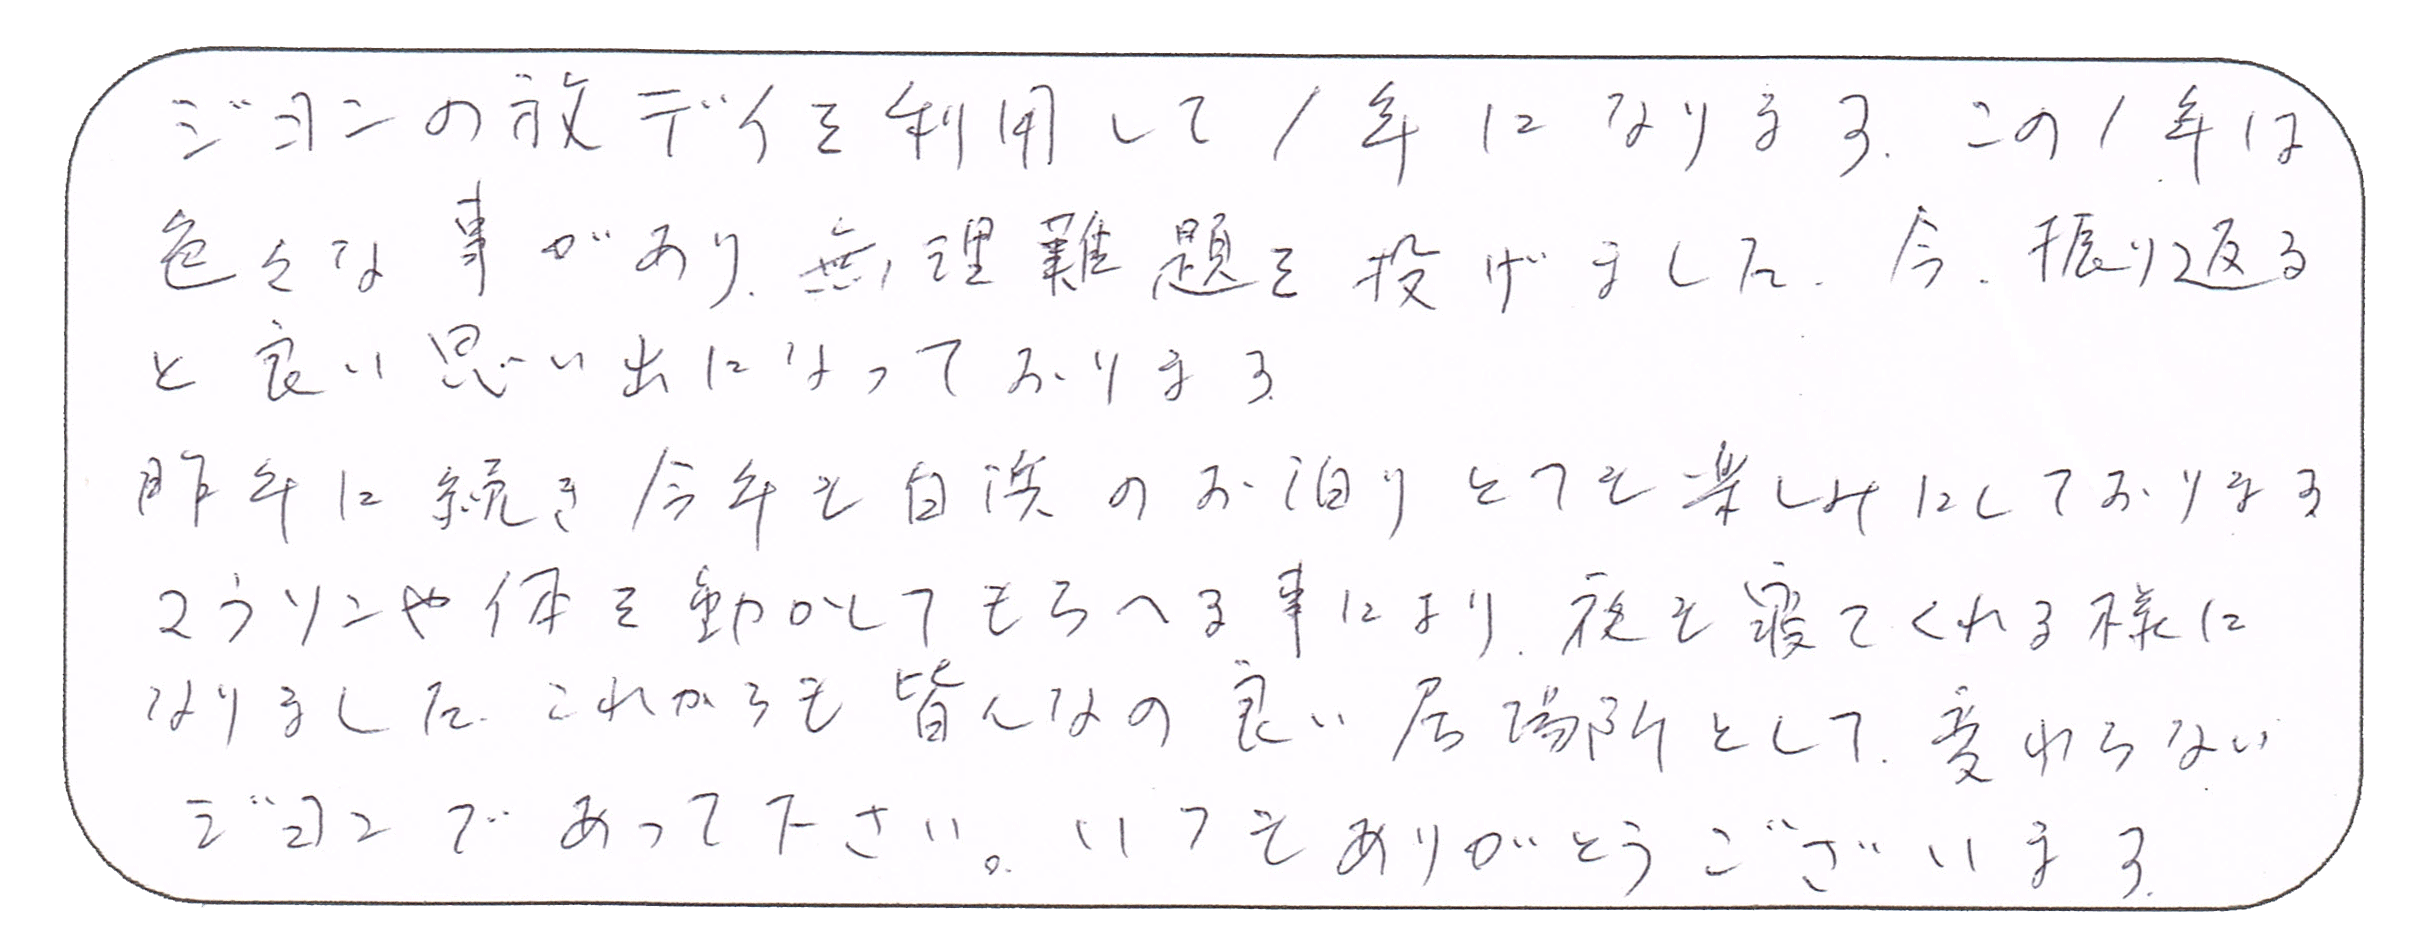 ジョンの放デイを利用して1年になります。この1年は
色々な事があり、無理難題を投げました。今、振り返る
と良い思い出になっております。
昨年に続き今年も白浜のお泊りとても楽しみにしております
マラソンや体を動かしてもらへる事により、夜も寝てくれる様に
なりました。これからも皆んなの良い居場所として、変わらない
ジョンであって下さい。いつもありがとうございます。